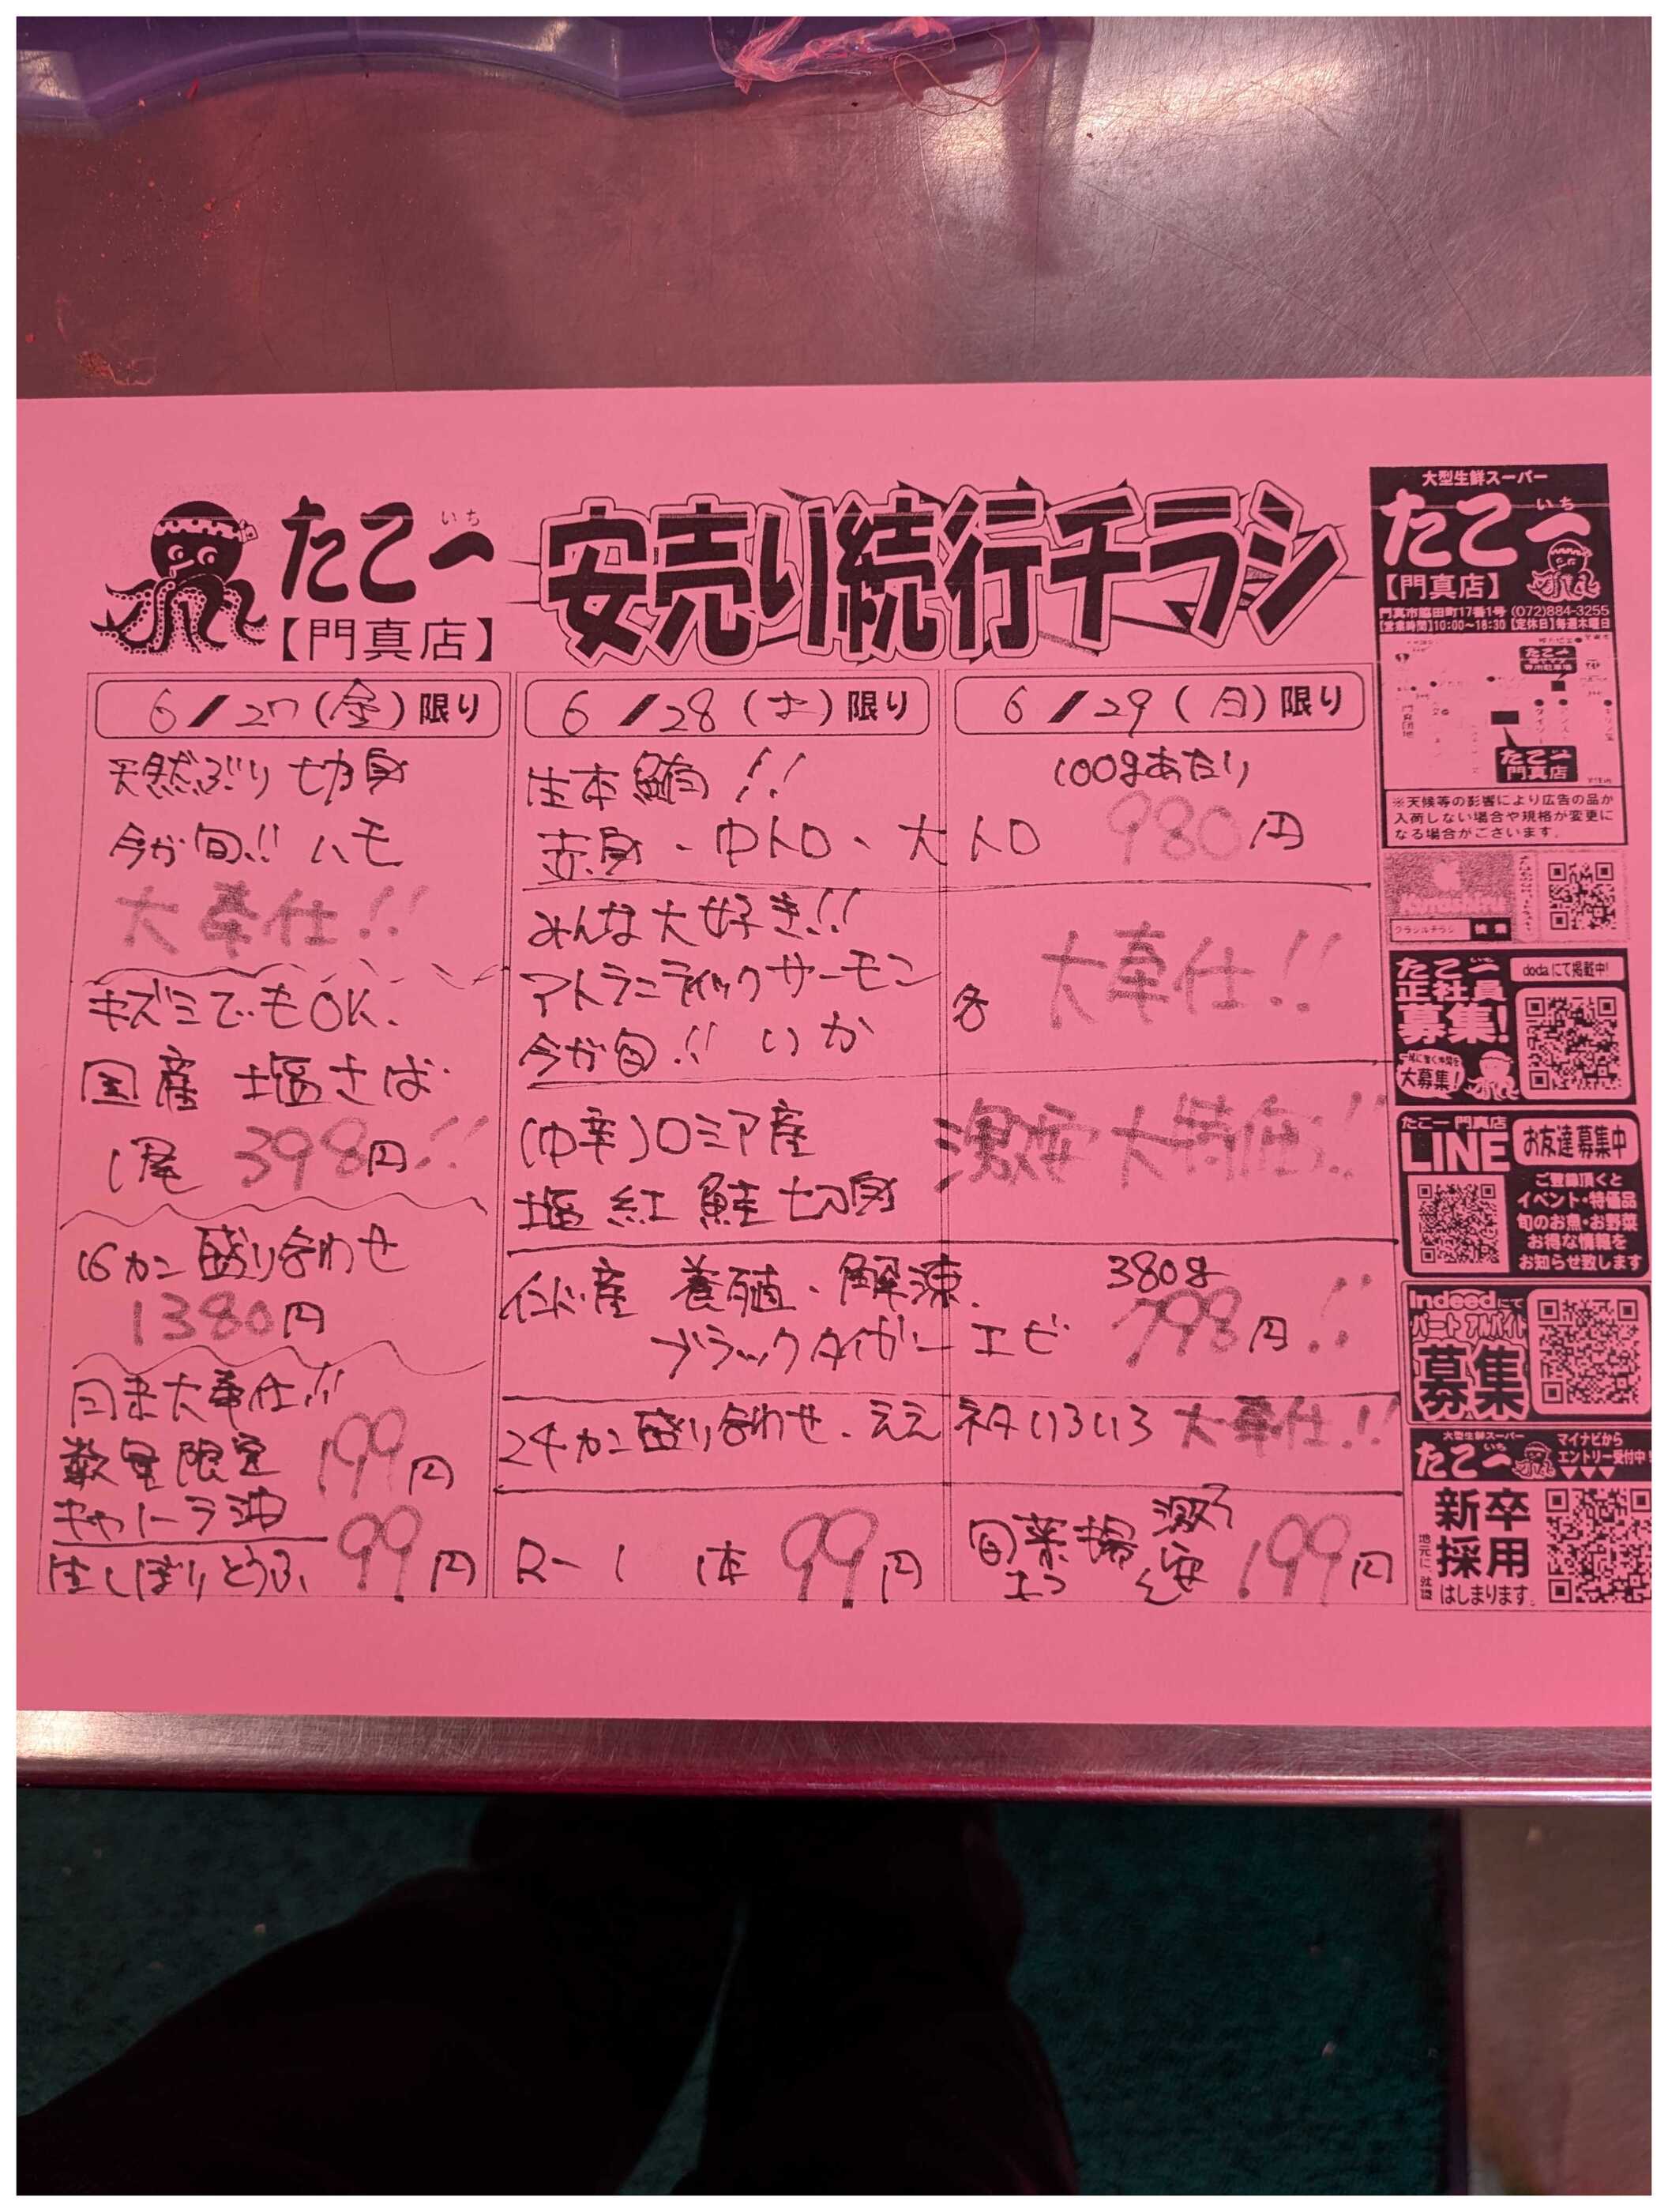 たこ一
いち
【門真店】
安売り続行チラシ
6/27(金)限り
天然ぶり 切身
今が旬!! ハモ
大奉仕!!
キズミでもOK.
国産 塩さば
1尾 398円!!
16カン盛り合わせ
1380円
日末大奉仕!!
数量限定 199円
キャノーラ油
生しぼりとうふ 99円
6/28(土)限り
6/29(日)限り
生本鮪!!
100gあたり
赤身、中トロ、大トロ 980円
みんな大好き!!
アトランティックサーモン
今が旬!! いか
各 大奉仕!!
(中辛)ロシア産
塩紅鮭切身
激安大特価!!
インド産 養殖・解凍.
ブラックタイガーエビ
380g
798円!!
24カン盛り合わせ. ええネタいろいろ 大奉仕!!
R-1 1本 99円
旬菜揚
199円
大型生鮮スーパー
たこ一
いち
【門真店】
門真市脇田町17番1号 (072)884-3255
【営業時間】10:00～18:30【定休日】毎週木曜日
たこ一
専用駐車場
たこ一
門真店
※天候等の影響により広告の品が
入荷しない場合や規格が変更に
なる場合がございます。
クラシルチラシ 検索
たこ一
正社員
募集!
dodaにて掲載中!
一緒に働く仲間を
大募集!
たこ一 門真店
LINE
お友達募集中
ご登録頂くと
イベント・特価品
旬のお魚・お野菜
お得な情報を
お知らせ致します
Indeedにて
パート アルバイト
募集
大型生鮮スーパー
たこ一
いち
マイナビから
エントリー受付中!
新卒
採用
地元に就職
はじまります。